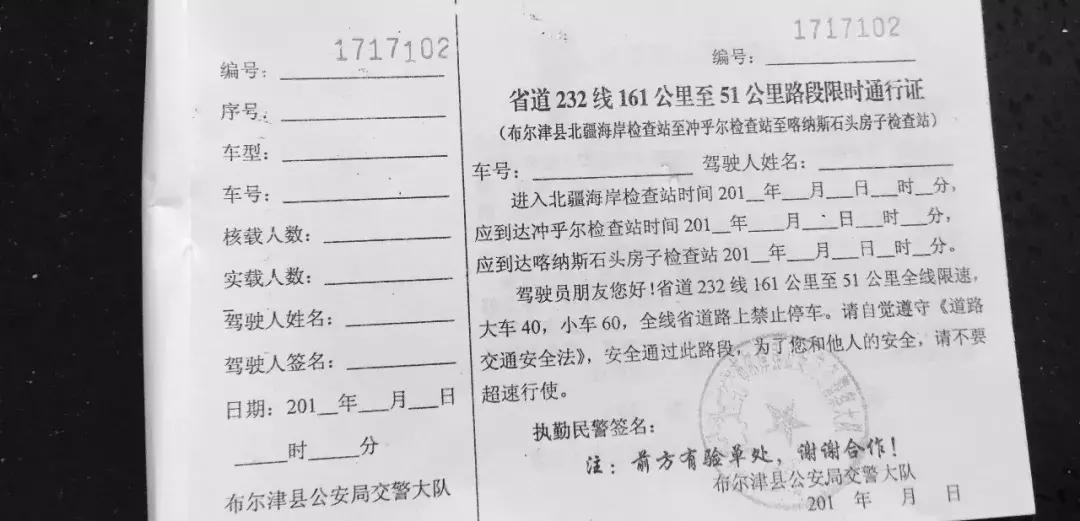 1717102
编号：
序号：
车型：
车号：
核载人数：
实载人数：
驾驶人姓名：
驾驶人签名：
日期：201__年___月___日
____时____分
布尔津县公安局交警大队
1717102
编号：
省道232线161公里至51公里路段限时通行证
（布尔津县北疆海岸检查站至冲乎尔检查站至喀纳斯石头房子检查站）
车号：__________ 驾驶人姓名：__________
进入北疆海岸检查站时间201__年___月___日___时__分，
应到达冲乎尔检查站时间201__年____月___日___时__分，
应到达喀纳斯石头房子检查站201__年____月___日__时__分。
驾驶员朋友您好！省道232线161公里至51公里全线限速，
大车40，小车60，全线省道路上禁止停车。请自觉遵守《道路
交通安全法》，安全通过此路段，为了您和他人的安全，请不要
超速行使。
执勤民警签名：
注：前方有验单处，谢谢合作！
布尔津县公安局交警大队
201 年 月 日